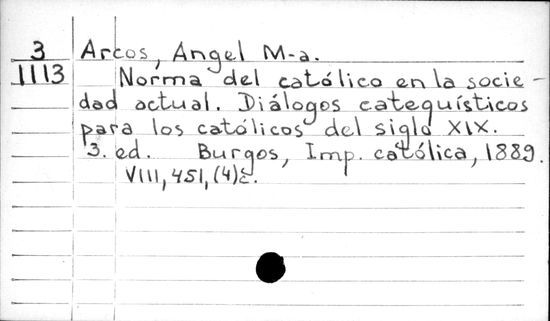 3 Arcos, Angel M-a.
1113 Norma del católico en la socie-
dad actual. Diálogos catequísticos
para los católicos del siglo XIX.
3. ed. Burgos, Imp. católica, 1889.
VIII, 451, (4) c.